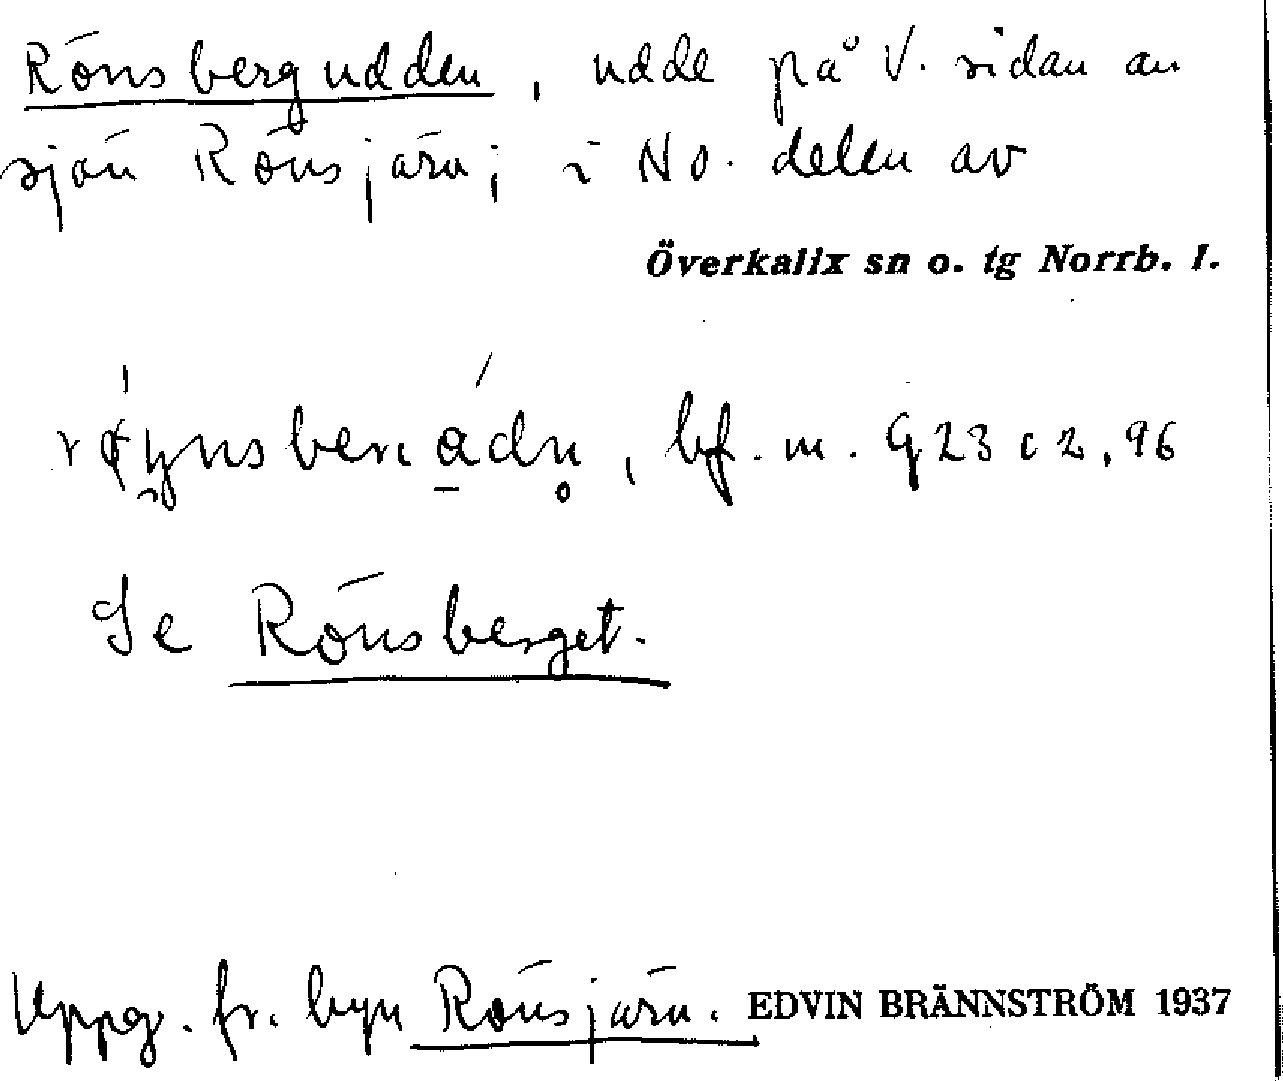 Rönsbergudden, udde på V. sidan av
sjön Rönsjärv; i NO. delen av
Överkalix sn o. tg Norrb. l.
bf. m. G 23 c 2, 96
Se Rönsberget.
Uppg. fr. byn Rönsjärv. EDVIN BRÄNNSTRÖM 1937